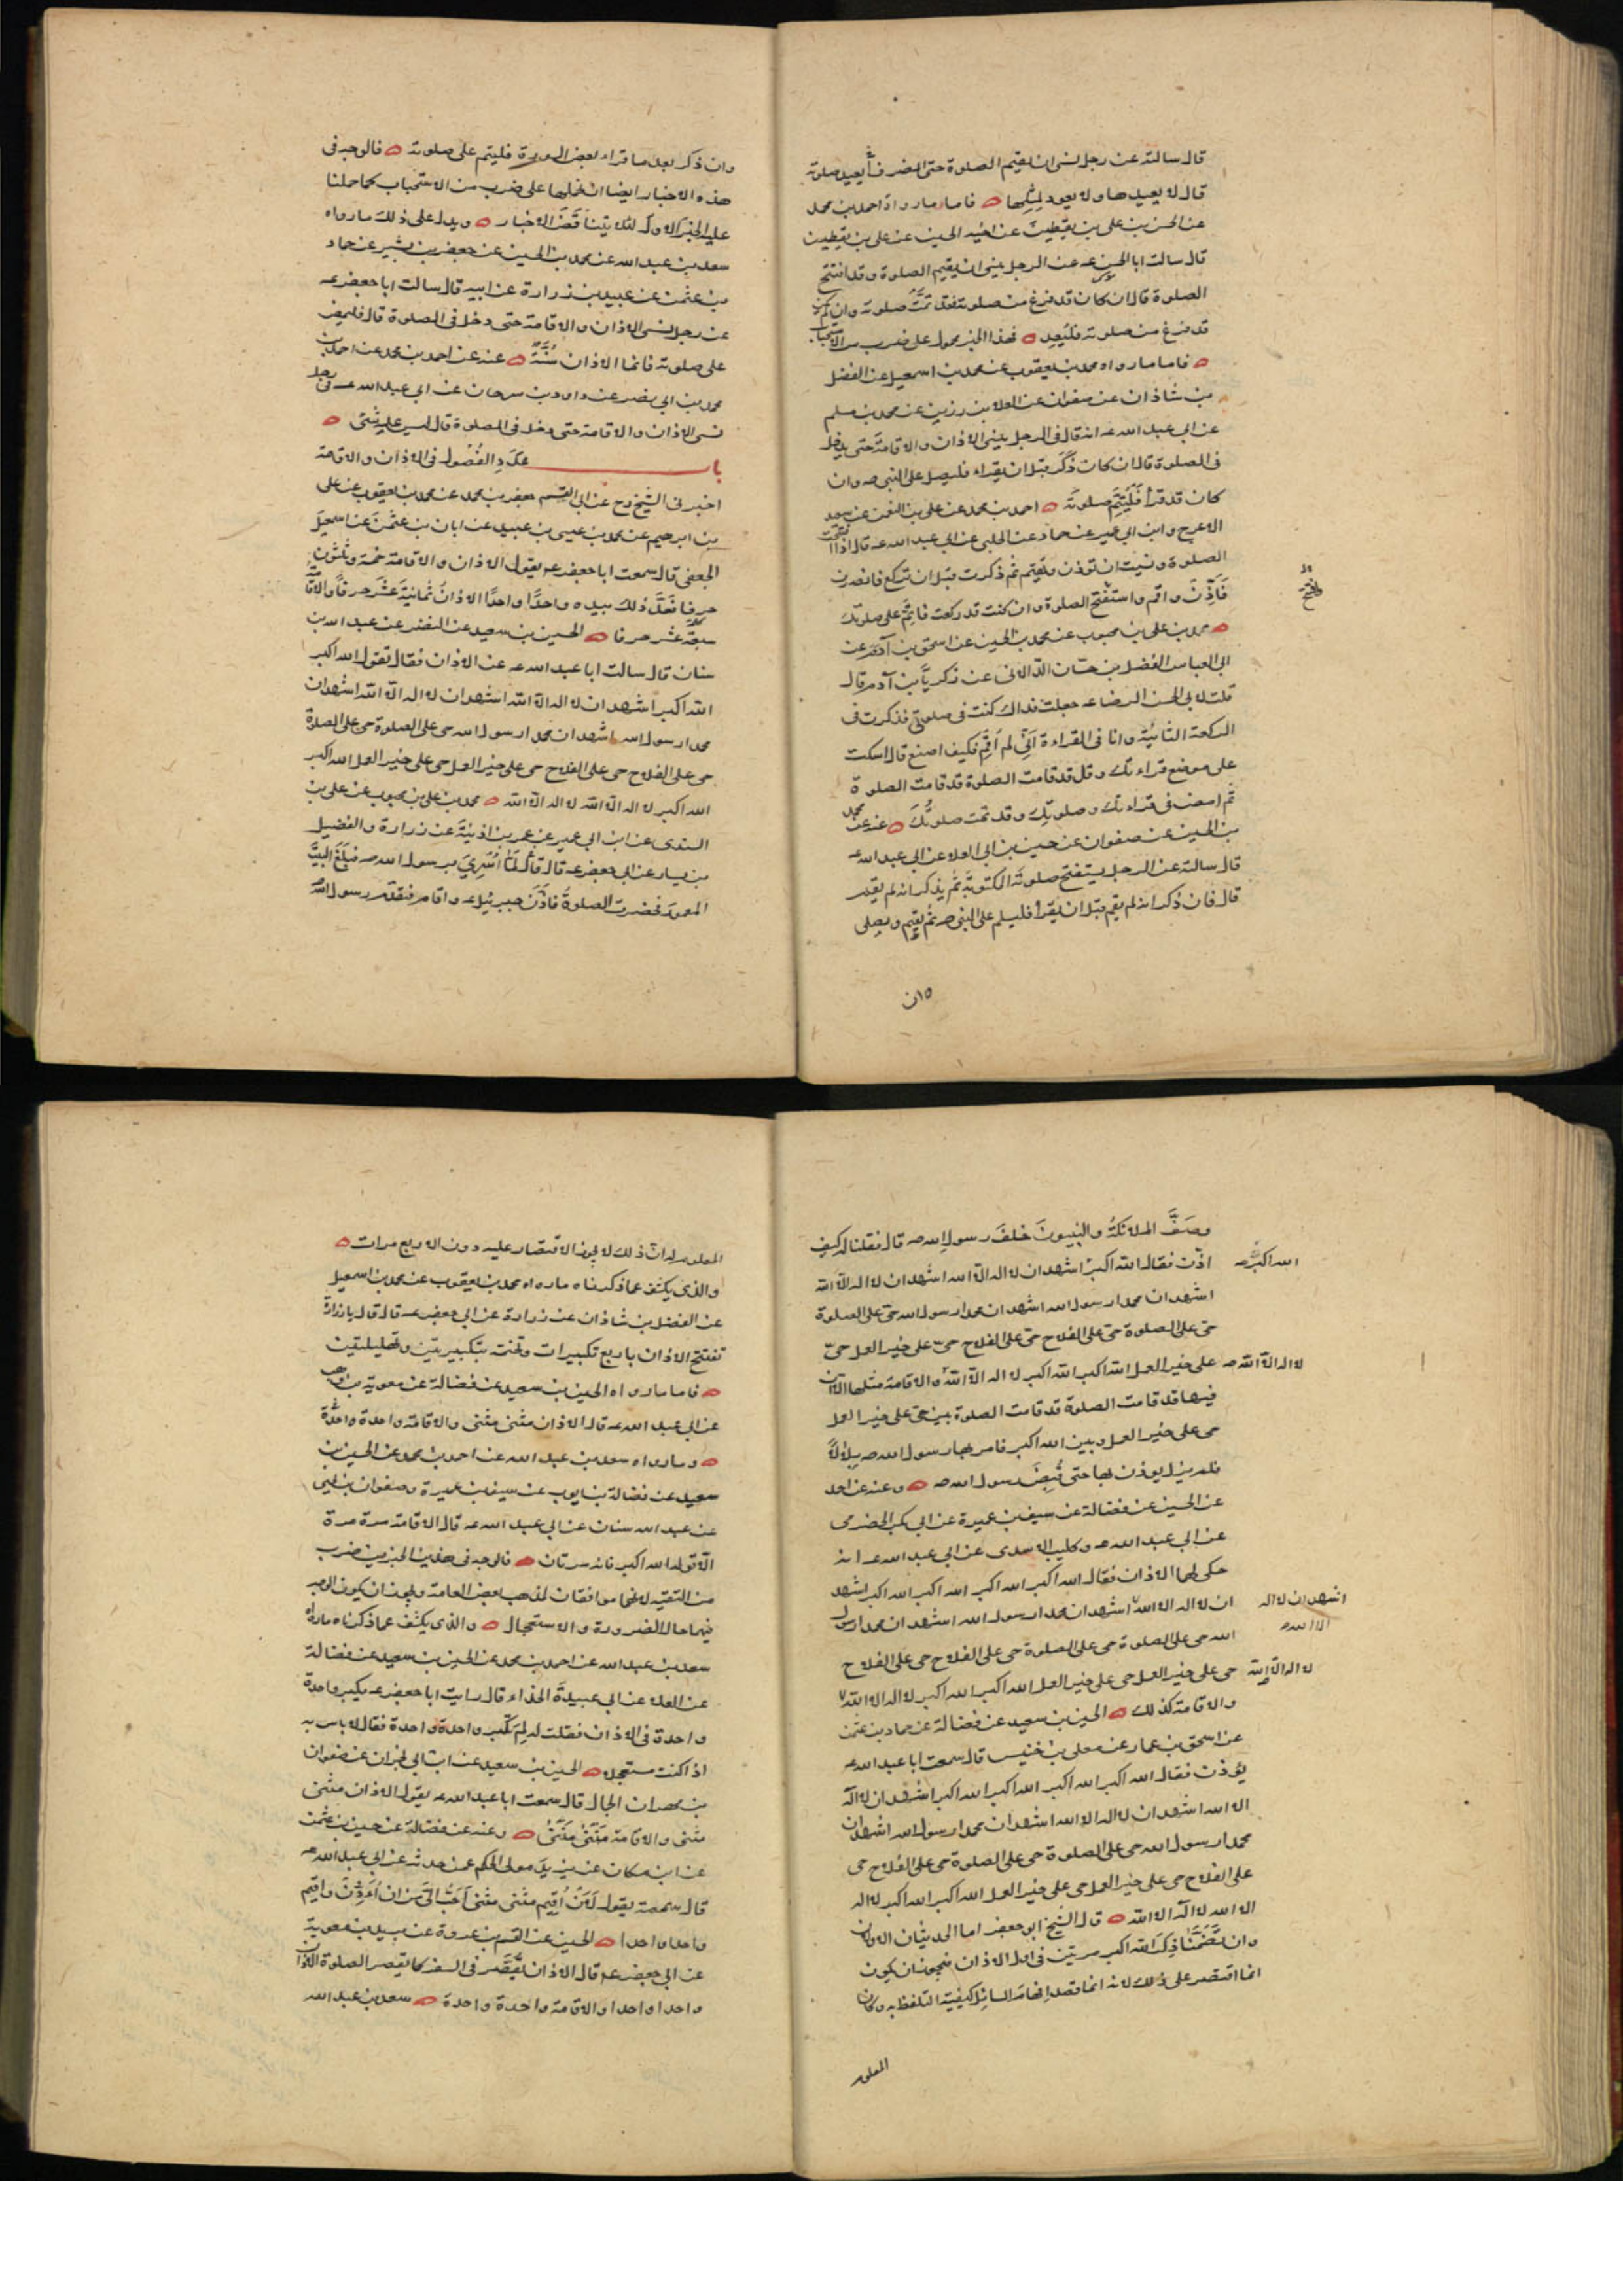 قال سالته عن رجل نسى ان يقيم الصلوة حتى انصرف أيعيد صلوته
قال لا يعيدها ولا يعود لمثلها فاما ما رواه احمد بن محمد
عن الحسن بن على بن يقطين عن اخيه الحسين عن على بن يقطين
قال سالت ابا الحسن عه عن الرجل ينسى ان يقيم الصلوة وقد افتتح
الصلوة قال ان كان قد فرغ من صلوته فقد تمت صلوته وان لم يكن
قد فرغ من صلوته فليعد فهذا الخبر محمول على ضرب من الاستحباب
فاما ما رواه محمد بن يعقوب عن محمد بن اسمعيل عن الفضل
بن شاذان عن صفوان عن العلا بن رزين عن محمد بن مسلم
عن ابى عبد الله عه انه قال فى الرجل ينسى الاذان والاقامة حتى يدخل
فى الصلوة قال ان كان ذكر قبل ان يقراء فليصل على النبى صه وان
كان قد قرأ فليتم صلوته احمد بن محمد عن على بن النعمن عن سعيد
الاعرج وابن ابى عمير عن حماد عن الحلبى عن ابى عبد الله عه قال اذا افتتحت
الصلوة ونسيت ان توذن وتقيم ثم ذكرت قبل ان تركع فانصرف
فأذن واقم واستفتح الصلوة وان كنت قد ركعت فاتم على صلوتك
محمد بن على بن محبوب عن محمد بن الحسين عن اسحق بن آدم عن
ابى العباس الفضل بن حسان الدالانى عن زكريا بن آدم قال
قلت لابى الحسن الرضا عه جعلت فداك كنت فى صلوتى فذكرت فى
الركعة الثانية وانا فى القراءة انى لم اقم فكيف اصنع قال اسكت
على موضع قراءتك وقل قد قامت الصلوة قد قامت الصلوة
ثم امض فى قراءتك وصلوتك وقد تمت صلوتك عنه عن محمد
بن الحسين عن صفوان عن حسين بن ابى العلا عن ابى عبد الله عه
قال سالته عن الرجل يستفتح صلوته المكتوبة ثم يذكر انه لم يقم
قال فان ذكر انه لم يقم قبل ان يقرأ فليسلم على النبى صه ثم يقيم ويصلى
وان ذكر بعد ما قراء بعض السورة فليتم على صلوته فالوجه فى
هذه الاخبار ايضا ان نحملها على ضرب من الاستحباب كما حملنا
عليه الخبر الاول لئلا يتناقض الاخبار ويدل على ذلك ما رواه
سعد بن عبد الله عن محمد بن الحسين عن جعفر بن بشير عن حماد
بن عثمن عن عبيد بن زرارة عن ابيه قال سالت ابا جعفر عه
عن رجل نسى الاذان والاقامة حتى دخل فى الصلوة قال فليمض
على صلوته فانما الاذان سنة عنه عن احمد بن محمد عن احمد بن
محمد بن ابى نصر عن داود بن سرحان عن ابى عبد الله عه فى رجل
نسى الاذان والاقامة حتى دخل فى الصلوة قال ليس عليه شئ
باب عدد الفصول فى الاذان والاقامة
اخبرنى الشيخ رح عن ابى القسم جعفر بن محمد عن محمد بن يعقوب عن على
بن ابرهيم عن محمد بن عيسى بن عبيد عن ابان بن عثمن عن اسمعيل
الجعفى قال سمعت ابا جعفر عه يقول الاذان والاقامة خمسة وثلثون
حرفا فعد ذلك بيده واحدا واحدا الاذان ثمانية عشر حرفا والاقامة
سبعة عشر حرفا الحسين بن سعيد عن النضر عن عبد الله بن
سنان قال سالت ابا عبد الله عه عن الاذان فقال تقول الله اكبر
الله اكبر اشهد ان لا اله الا الله اشهد ان لا اله الا الله اشهد ان
محمدا رسول الله اشهد ان محمدا رسول الله حى على الصلوة حى على الصلوة
حى على الفلاح حى على الفلاح حى على خير العمل حى على خير العمل الله اكبر
الله اكبر لا اله الا الله لا اله الا الله محمد بن على بن محبوب عن على بن
السندى عن ابن ابى عمير عن عمر بن اذينة عن زرارة والفضيل
بن يسار عن ابى جعفر عه قال قال لما اسرى برسول الله صه فبلغ البيت
المعمور فحضرت الصلوة فاذن جبرئيل عه واقام فتقدم رسول الله
وصف الملائكة والنبيون خلف رسول الله صه قال فقلنا له كيف
اذن فقال الله اكبر اشهد ان لا اله الا الله اشهد ان لا اله الا الله
الله اكبر صه
اشهد ان محمدا رسول الله اشهد ان محمدا رسول الله حى على الصلوة
حى على الصلوة حى على الفلاح حى على الفلاح حى على خير العمل حى
على خير العمل الله اكبر الله اكبر لا اله الا الله والاقامة مثلها الا ان
لا اله الا الله صه
فيها قد قامت الصلوة قد قامت الصلوة بين حى على خير العمل
حى على خير العمل وبين الله اكبر فامر بها رسول الله صه بلالا
فلم يزل يوذن بها حتى قبض رسول الله صه وعنه عن احمد
عن الحسين عن فضالة عن سيف بن عميرة عن ابى بكر الحضرمى
عن ابى عبد الله عه وكليب الاسدى عن ابى عبد الله عه انه
حكى لهما الاذان فقال الله اكبر الله اكبر الله اكبر الله اكبر اشهد
ان لا اله الا الله اشهد ان محمدا رسول الله اشهد ان محمدا رسول
اشهد ان لا اله
الا الله صه
الله حى على الصلوة حى على الصلوة حى على الفلاح حى على الفلاح
حى على خير العمل حى على خير العمل الله اكبر الله اكبر لا اله الا الله
لا اله الا الله
والاقامة كذلك الحسين بن سعيد عن فضالة عن حماد بن عثمن
عن اسحق بن عمار عن معلى بن خنيس قال سمعت ابا عبد الله عه
يؤذن فقال الله اكبر الله اكبر الله اكبر الله اكبر اشهد ان لا اله
الا الله اشهد ان لا اله الا الله اشهد ان محمدا رسول الله اشهد ان
محمدا رسول الله حى على الصلوة حى على الصلوة حى على الفلاح حى
على الفلاح حى على خير العمل حى على خير العمل الله اكبر الله اكبر لا اله
الا الله لا اله الا الله قال الشيخ ابو جعفر اما الحديثان الاولان
وان تضمنا ذكر الله اكبر مرتين فى اول الاذان فيجوز ان يكون
انما اقتصر على ذلك لانه انما قصد افهام السائل كيفية التلفظ به وكان
المعلوم
المعلوم له ان ذلك لا يجوز الاقتصار عليه دون الاربع مرات
والذى يكشف عما ذكرناه ما رواه محمد بن يعقوب عن محمد بن اسمعيل
عن الفضل بن شاذان عن زرارة عن ابى جعفر عه قال قال يا زرارة
تفتتح الاذان باربع تكبيرات وتختمه بتكبيرتين وتهليلتين
فاما ما رواه الحسين بن سعيد عن فضالة عن معوية بن وهب
عن ابى عبد الله عه قال الاذان مثنى مثنى والاقامة واحدة واحدة
وما رواه سعد بن عبد الله عن احمد بن محمد عن الحسين بن
سعيد عن فضالة بن ايوب عن سيف بن عميرة وصفوان بن يحيى
عن عبد الله سنان عن ابى عبد الله عه قال الاقامة مرة مرة
الا قول الله اكبر فانه مرتان فالوجه فى هذين الخبرين ضرب
من التقية لانهما موافقان لمذهب بعض العامة ويجوز ان يكون الوجه
فيهما حال الضرورة والاستعجال والذى يكشف عما ذكرناه ما رواه
سعد بن عبد الله عن احمد بن محمد عن الحسين بن سعيد عن فضالة
عن العلا عن ابى عبيدة الحذاء قال رايت ابا جعفر عه يكبر واحدة
واحدة فى الاذان فقلت له لم تكبر واحدة واحدة فقال لا باس به
اذا كنت مستعجلا الحسين بن سعيد عن ابن ابى نجران عن صفوان
بن مهران الجمال قال سمعت ابا عبد الله عه يقول الاذان مثنى
مثنى والاقامة مثنى مثنى وعنه عن فضالة عن حسين بن عثمن
عن ابن مسكان عن يزيد مولى الحكم عمن حدثه عن ابى عبد الله عه
قال سمعته يقول لان اقيم مثنى مثنى احب الى من ان اوذن واقيم
واحدا واحدا الحسين عن القسم بن عروة عن بريد بن معوية
عن ابى جعفر عه قال الاذان يقصر فى السفر كما يقصر الصلوة الاذان
واحدا واحدا والاقامة واحدة واحدة سعد بن عبد الله